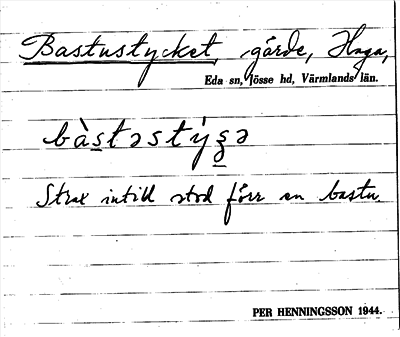 Bastustycket, gärde, Haga,
Eda sn, Jösse hd, Värmlands län.
bàs̲təstýʒ̲ə
Strax intill stod förr en bastu.
PER HENNINGSSON 1944.